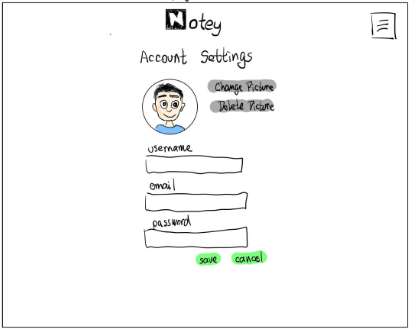 Notey
Account Settings
Change Picture
Delete Picture
username
email
password
save cancel